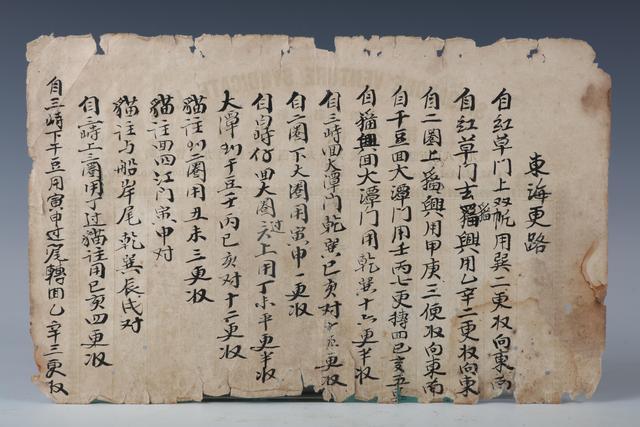 東海更路
自红草门上双帆用巽二更収向東南
自红草门去猫興用乙辛二更収向東
自二圈上猫興用甲庚三便収向東南
自干豆回大潭门用壬丙七更轉回巳亥五更
自猫興回大潭门用乾巽十六更半収
自三峙回大潭门乾巽巳亥对 更収
自二圈下大圈用寅申一更収
自白峙仔回大圈 过上用丁 半更半収
大潭到干豆壬丙巳亥对十二更収
猫註到二圈用丑未三更収
猫註回四江门寅申对
猫註与船岸尾乾巽辰戌对
自三峙上三圈用丁过猫註用巳亥四更収
自三峙下干豆用寅申过尾轉回乙辛三更収
VENTURE SYNDICATE